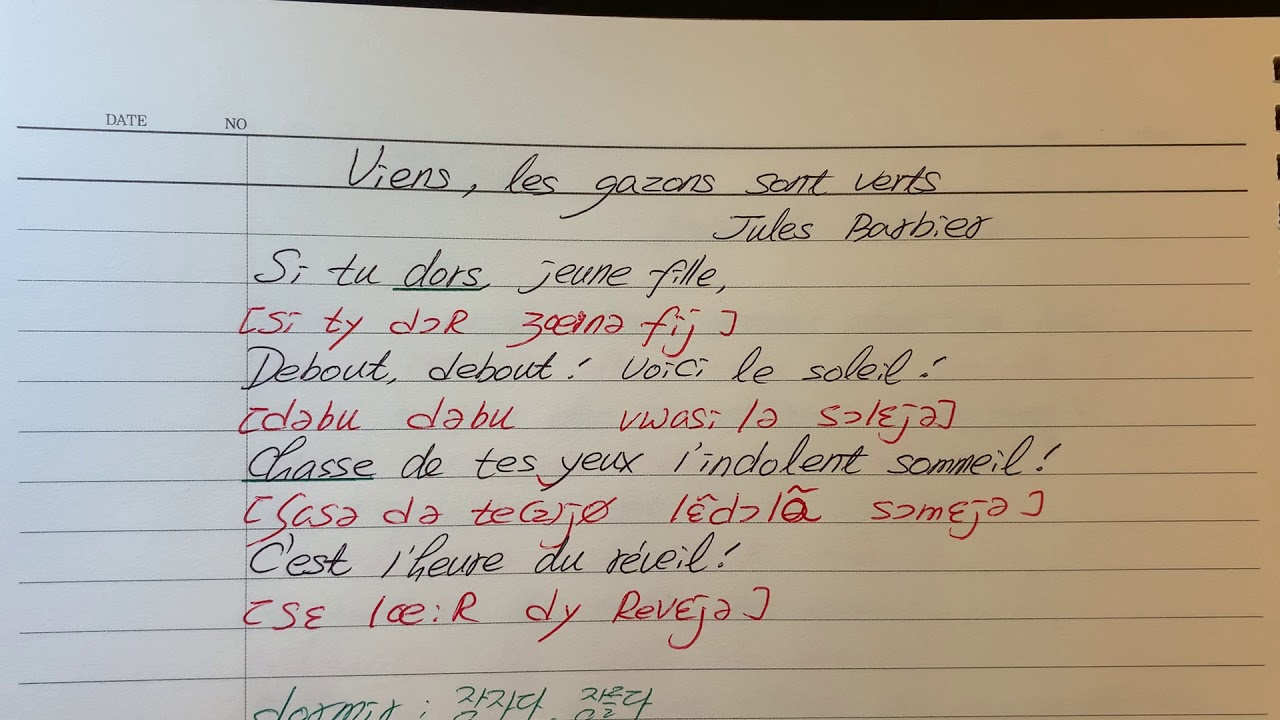 DATE NO
Viens, les gazons sont verts
Jules Barbier
Si tu dors, jeune fille,
[si ty dɔR ʒœnə fij]
Debout, debout! Voici le soleil!
[dəbu dəbu vwasi lə sɔlɛjə]
Chasse de tes yeux l'indolent sommeil!
[ʃasə də te(z)jø lɛ̃dɔlɑ̃ sɔmɛjə]
C'est l'heure du réveil!
[sɛ lœ:R dy Revɛjə]
dormir : 잠자다, 잠들다